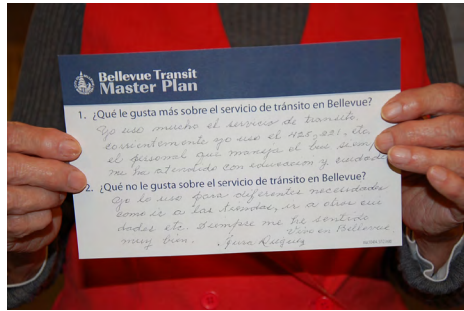 Bellevue Transit
Master Plan
1. ¿Qué le gusta más sobre el servicio de tránsito en Bellevue?
Yo uso mucho el servicio de transito.
corrientemente yo uso el 425, 221, etc.
el personal que maneja el bus siem
me ha atendido con educacion y cuidado
2. ¿Qué no le gusta sobre el servicio de tránsito en Bellevue?
yo lo uso para diferentes necesidades
como ir a las tiendas, ir a otras ciu
dades etc. siempre me he sentido
muy bien. Vivo en Bellevue.